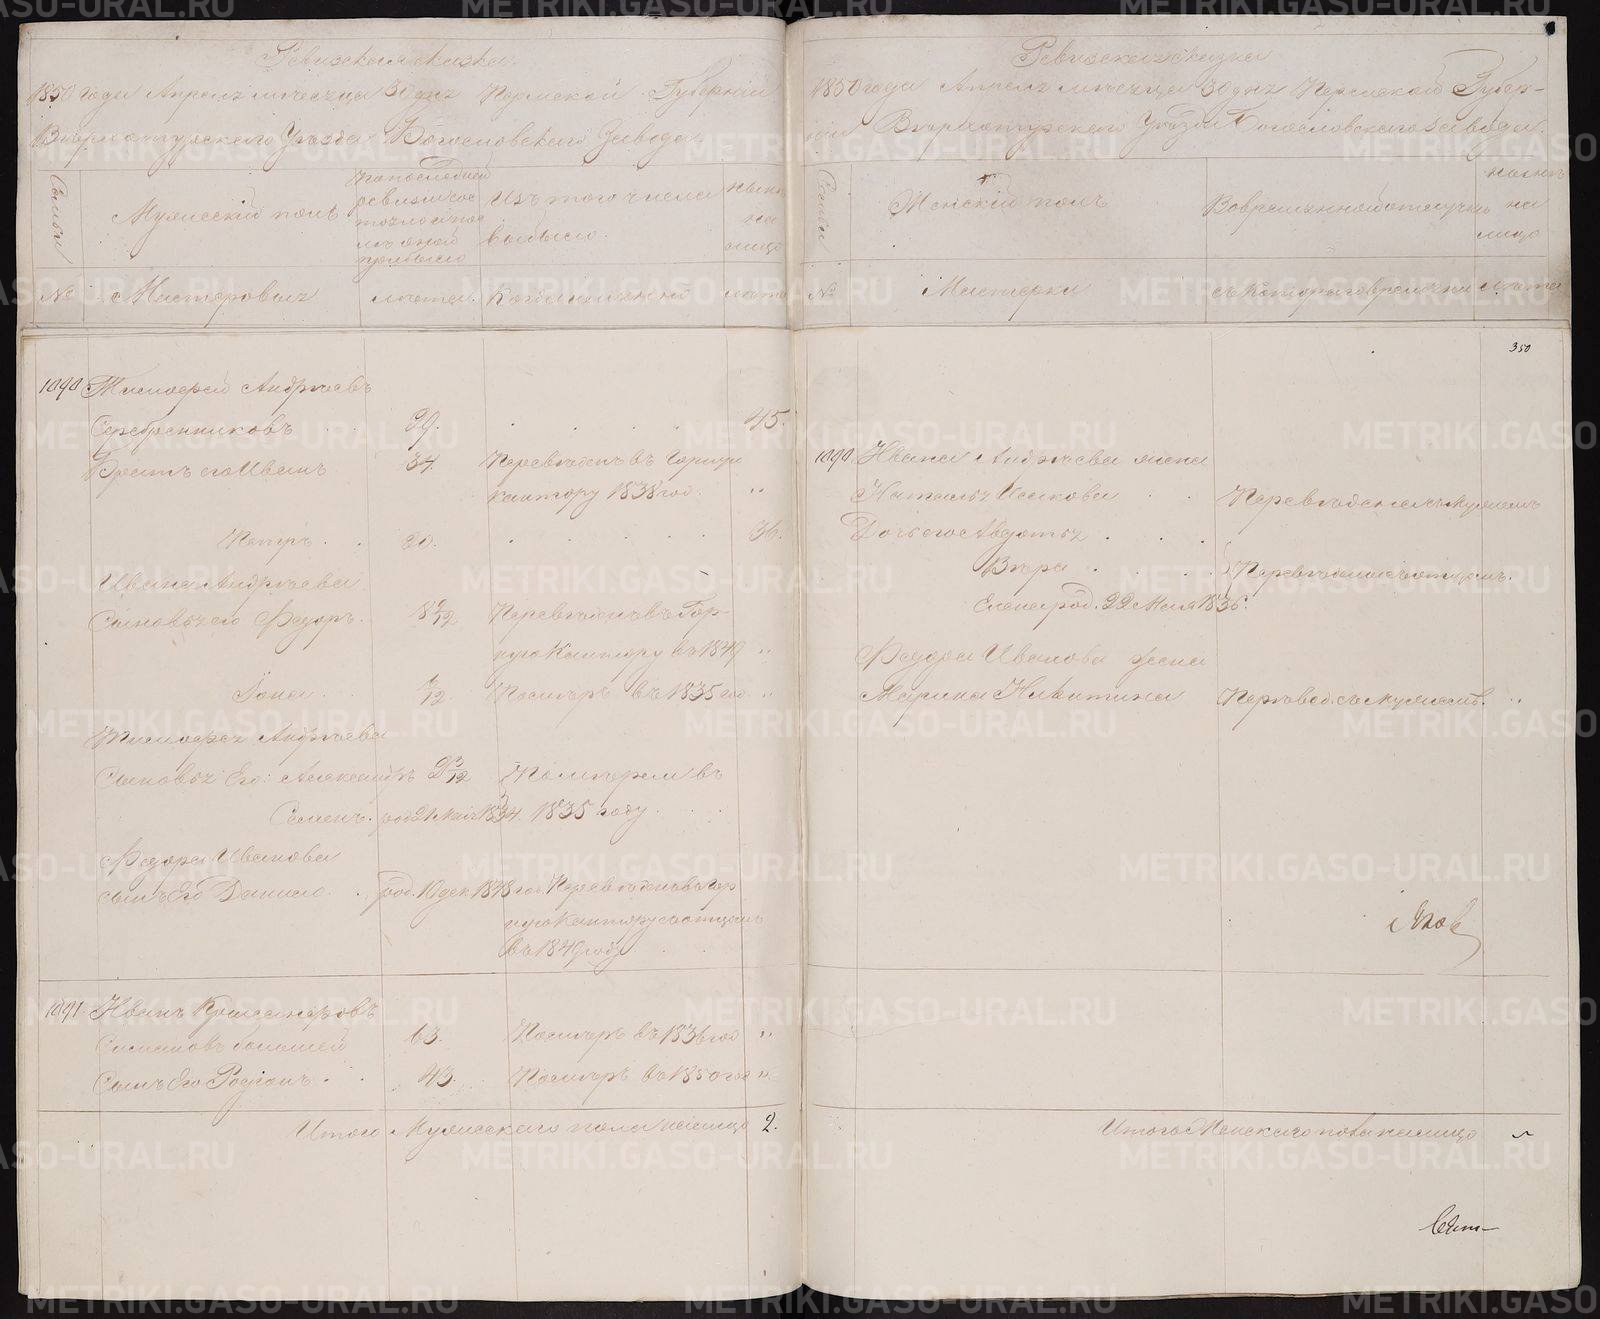 Ревизская сказка
1850 года Апреля месяца 30 дня Пермской Губернии
Верхотурского Уезда Богословского Завода
Семьи
Мужеской полъ
По последней ревизии состояло и после оной прибыло
Изъ того числа выбыло
Ныне на лицо
№
Мастеровыхъ
лета
Когда именно
лета
1090 Тимофей Андреевъ
Серебренниковъ 29. 45.
Братъ его Иванъ 34 Переведенъ въ Горную
кантору 1838 год. "
Петръ 20. 36.
Ивана Андреева
Сыновья его Федоръ 8 9/12 Переведенъ въ Гор-
ную Кантору въ 1849 "
Умеръ въ 1835 год "
Тимофея Андреева
Сыновья Его: Александръ 2 3/12 Померли въ
Семенъ род. 21 Мая 1834. 1835 году
Федора Ивanova
сынъ Его Данило род. 10 дек. 1848 год Переведенъ въ Гор
ную Кантору съ отцомъ
въ 1849 году
1091 Иванъ
63. Померъ въ 1836 год "
Сынъ Его Родионъ 43. Померъ въ 1850 год "
Итого Мужескаго пола налицо 2.
Ревизская сказка
1850 года Апреля месяца 30 дня Пермской Губер-
нии Верхотурского Уезда Богословского завода
Семьи
Женский полъ
Во временной отлучке
Ныне на лицо
№
Мастерки
съ котораго времени
лета
350
1090 Ивана Андреева жена
Наталья Исакова Переведена съ мужемъ
Дочь его Авдотья
Вера Переведены съ отцомъ.
Елена род. 22 Мая 1836.
Федора Ивanova жена
Марина Никитина Перевед. съ мужемъ. "
Итого Женскаго пола налицо "